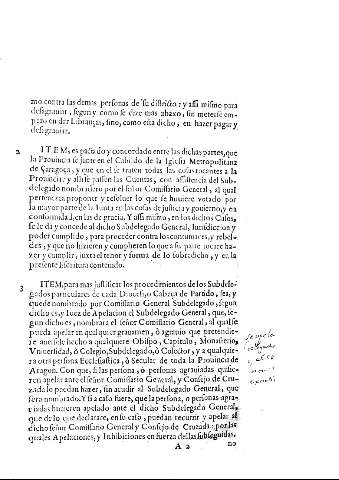 mo contra las demas personas de su distrito: y assi mismo para
desagrauiar, segun y como se dize mas abaxo, sin meterse em-
pero en dar Libranças, sino, como esta dicho, en hazer pagar y
desagrauiar.
2 ITEM, es pactado y concordado entre las dichas partes, que
la Prouincia se junte en el Cabildo de la Iglesia Metropolitana
de Çaragoça, y que en el se traten todas las cosas tocantes a la
Prouincia: y alli se passen las Cuentas, con assistencia del Sub-
delegado nombradero por el señor Comissario General, al qual
pertenezca proponer y resoluer lo que se huuiere votado por
la mayor parte de la Iunta en las cosas de justicia y gouierno, y en
conformidad, en las de gracia. Y assi mismo, en los dichos Casos,
se le da y concede al dicho Subdelegado General, Iurisdiccion y
poder cumplido, para proceder contra los contumaces, y rebel-
des, y que no hizieren y cumplieren lo que a su parte tocare ha-
zer y cumplir, iuxta el tenor y forma de lo sobredicho, y en la
presente Escritura contenado.
3 ITEM, para mas justificar los procedimientos de los Subdele-
gados particulares de cada Diocesi, o Cabeça de Partido, sea, y
quede nombrado por Comissario General Subdelegado, segun
dicho es, y Iuez de Apelacion el Subdelegado General, que, se-
gun dicho es, nombrara el señor Comissario General, al qual se
pueda apelar en qualquier grauamen, ò agrauio que pretendie-
re auersele hecho a qualquiere Obispo, Capitulo, Monasterio,
Vniuersidad, ò Colegio, Subdelegado, ò Colector, y a qualquie-
ra otra persona Ecclesiastica, ò Secular de toda la Prouincia de
Aragon. Con que, si las persona, ò personas agrauiadas quisie-
ren apelar ante el señor Comissario General, y Consejo de Cru-
zada lo puedan hazer, sin acudir al Subdelegado General, que
sera nombrado. Y si a caso fuere, que la persona, o personas agra-
uiadas huuieren apelado ante el dicho Subdelegado General,
que de lo que declarare, en su caso, puedan recurrir y apelar al
dicho señor Comissario General y Consejo de Cruzada: por las
quales Apelaciones, y Inhibiciones en fuerza dellas subseguidas,
A 2 no